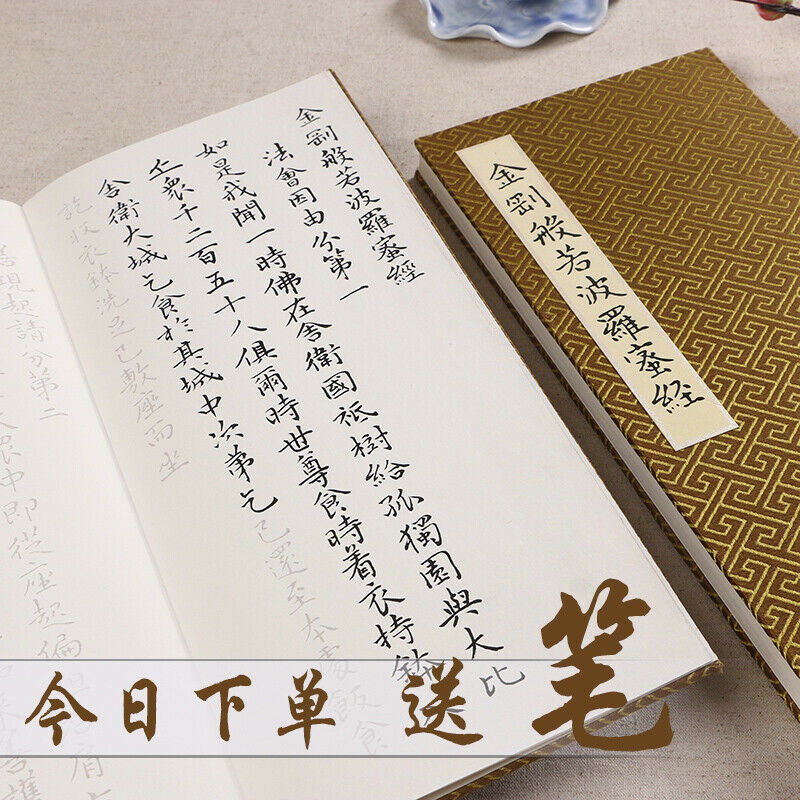 金剛般若波羅蜜經
法會因由分第一
如是我聞一時佛在舍衛國祇樹給孤獨園與大比
丘眾千二百五十人俱爾時世尊食時着衣持鉢
舍衛大城乞食於其城中次第乞已還至本處飯食
訖收衣鉢洗足已敷座而坐
善現起請分第二
大眾中即從座起偏
善護
金剛般若波羅蜜经
今日下单 送 笔